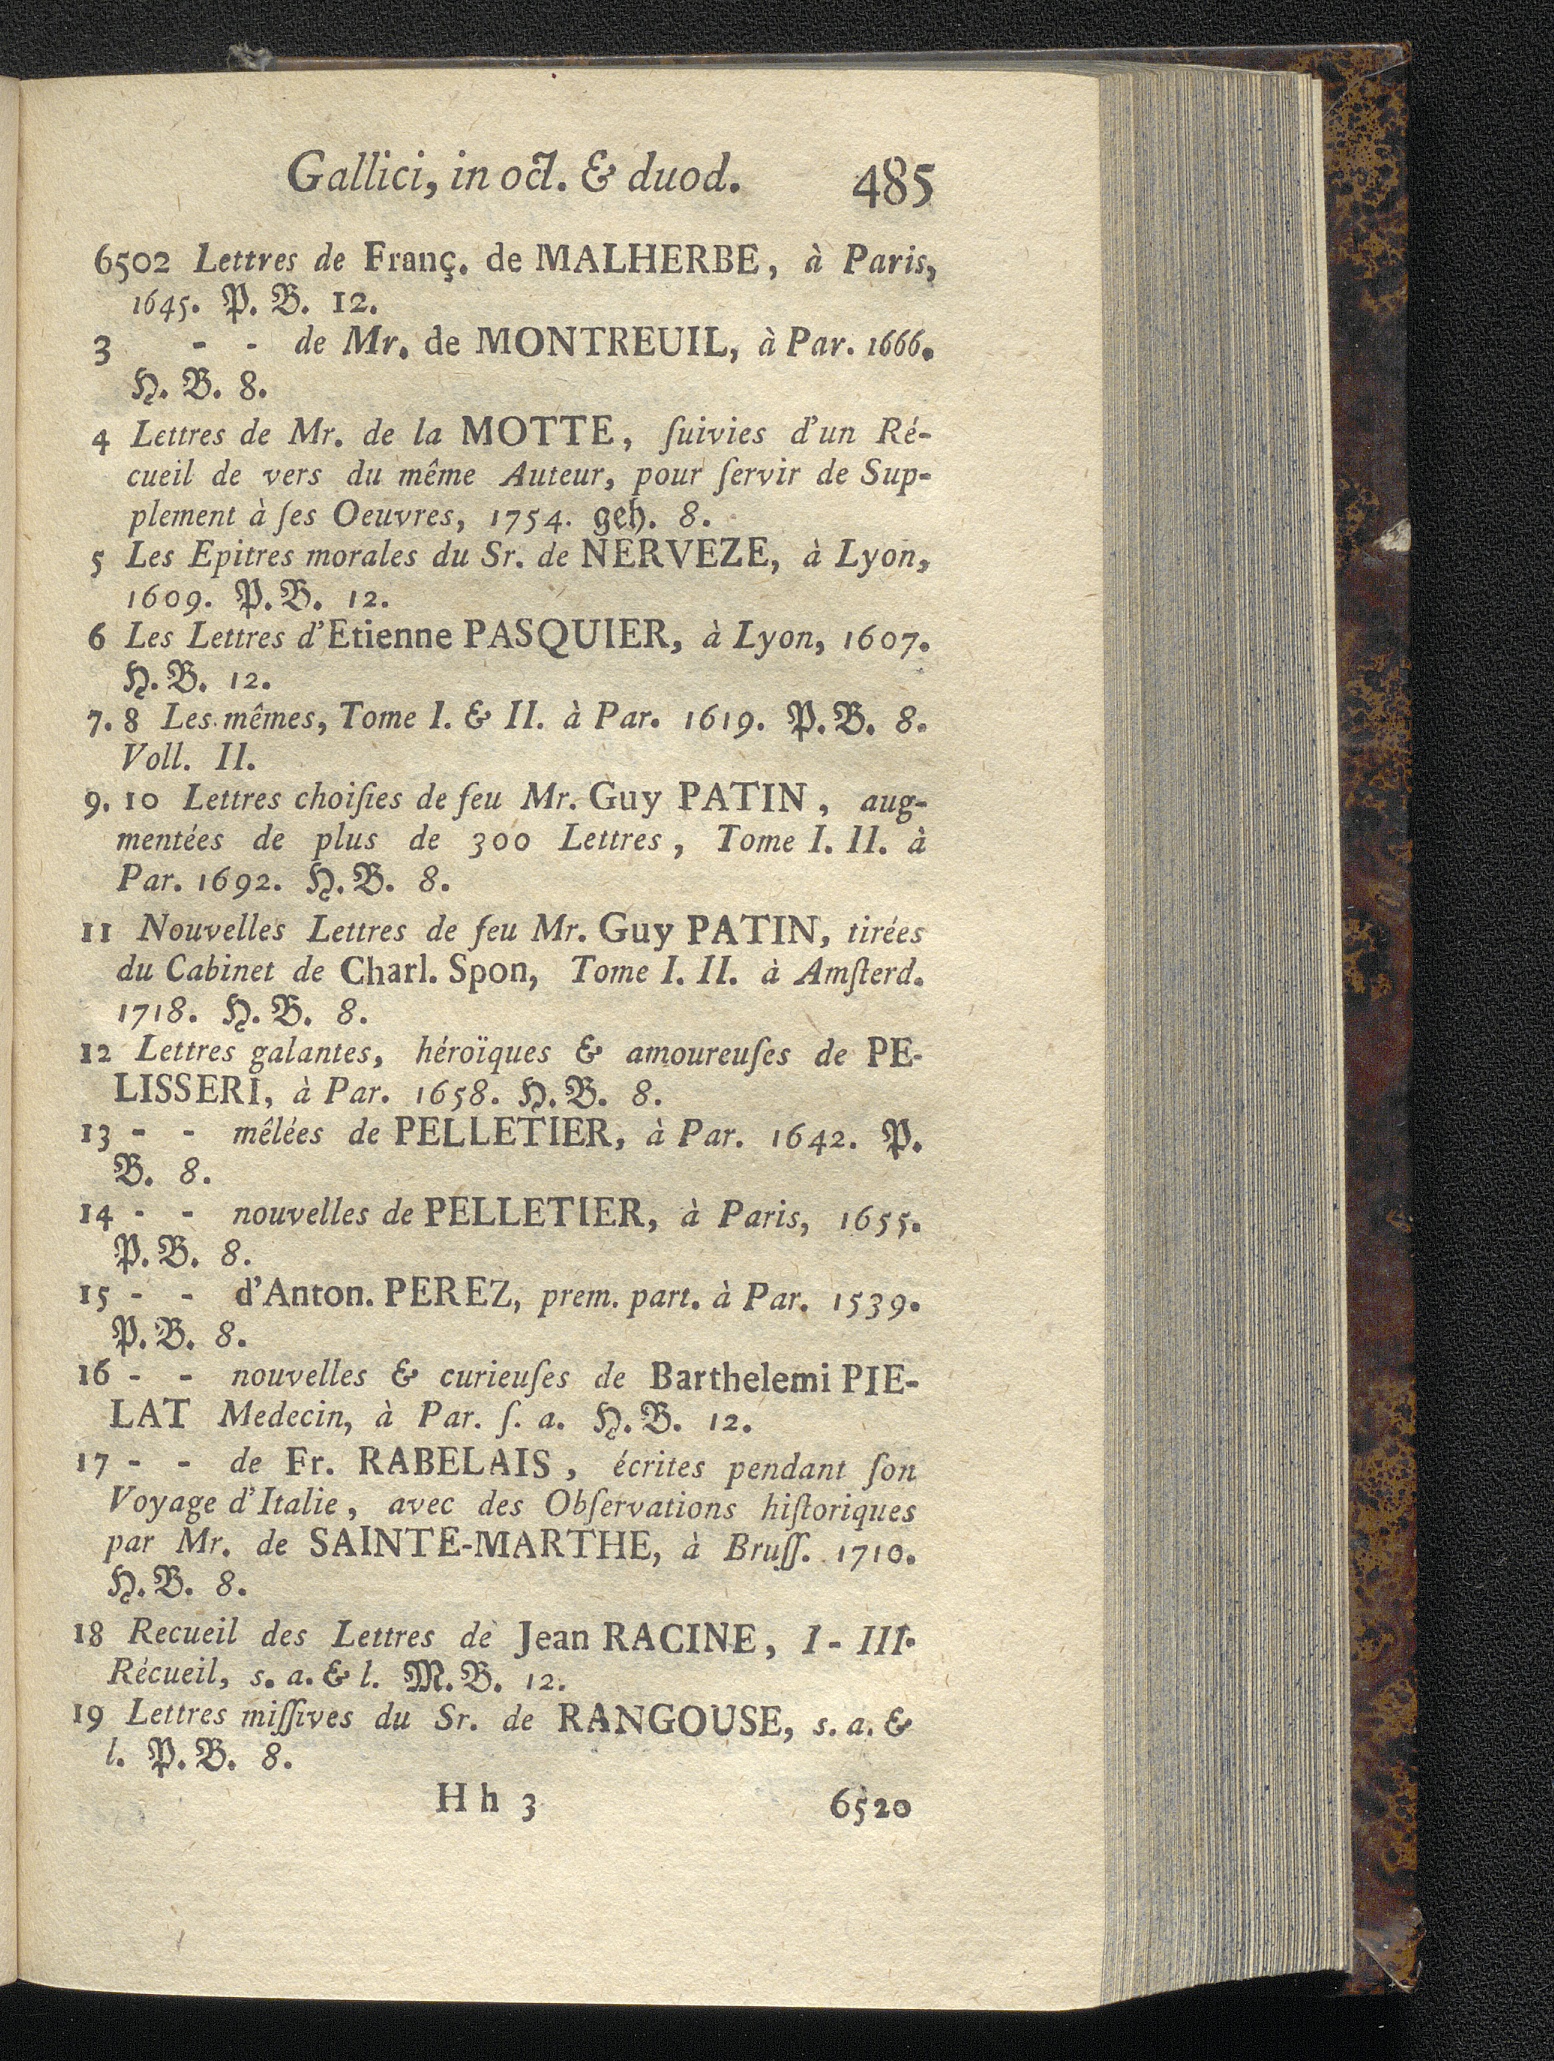 Gallici, in oct. & duod. 485
6502 Lettres de Franç. de MALHERBE, à Paris,
1645. P. B. 12.
3 - - de Mr. de MONTREUIL, à Par. 1666.
H. B. 8.
4 Lettres de Mr. de la MOTTE, ſuivies d'un Ré-
cueil de vers du même Auteur, pour ſervir de Sup-
plement à ſes Oeuvres, 1754. geh. 8.
5 Les Epitres morales du Sr. de NERVEZE, à Lyon,
1609. P. B. 12.
6 Les Lettres d'Etienne PASQUIER, à Lyon, 1607.
H. B. 12.
7. 8 Les mêmes, Tome I. & II. à Par. 1619. P. B. 8.
Voll. II.
9. 10 Lettres choiſies de feu Mr. Guy PATIN, aug-
mentées de plus de 300 Lettres, Tome I. II. à
Par. 1692. H. B. 8.
11 Nouvelles Lettres de feu Mr. Guy PATIN, tirées
du Cabinet de Charl. Spon, Tome I. II. à Amſterd.
1718. H. B. 8.
12 Lettres galantes, héroïques & amoureuſes de PE-
LISSERI, à Par. 1658. H. B. 8.
13 - - mêlées de PELLETIER, à Par. 1642. P.
B. 8.
14 - - nouvelles de PELLETIER, à Paris, 1655.
P. B. 8.
15 - - d'Anton. PEREZ, prem. part. à Par. 1539.
P. B. 8.
16 - - nouvelles & curieuſes de Barthelemi PIE-
LAT Medecin, à Par. ſ. a. H. B. 12.
17 - - de Fr. RABELAIS, écrites pendant ſon
Voyage d'Italie, avec des Obſervations hiſtoriques
par Mr. de SAINTE-MARTHE, à Bruſſ. 1710.
H. B. 8.
18 Recueil des Lettres de Jean RACINE, I - III.
Récueil, s. a. & l. M. B. 12.
19 Lettres miſſives du Sr. de RANGOUSE, s. a. &
l. P. B. 8.
H h 3 6520